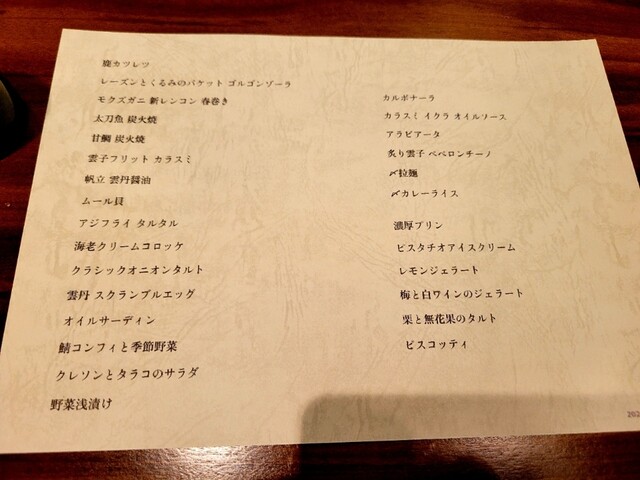 鹿カツレツ
レーズンとくるみのバケット ゴルゴンゾーラ
モクズガニ 新レンコン 春巻き
太刀魚 炭火焼
甘鯛 炭火焼
雲子フリット カラスミ
帆立 雲丹醤油
ムール貝
アジフライ タルタル
海老クリームコロッケ
クラシックオニオンタルト
雲丹 スクランブルエッグ
オイルサーディン
鯖コンフィと季節野菜
クレソンとタラコのサラダ
野菜浅漬け
カルボナーラ
カラスミ イクラ オイルソース
アラビアータ
炙り雲子 ペペロンチーノ
〆拉麺
〆カレーライス
濃厚プリン
ピスタチオアイスクリーム
レモンジェラート
梅と白ワインのジェラート
栗と無花果のタルト
ビスコッティ